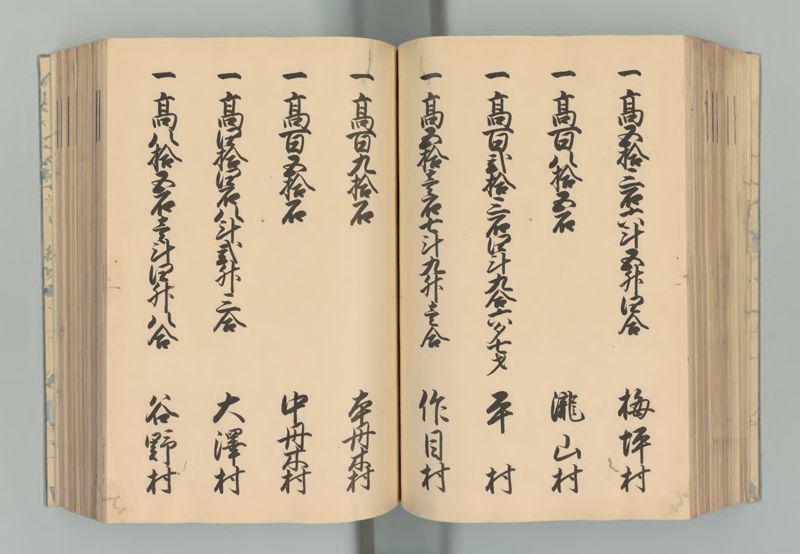 一 高五拾三石六斗五升四合 梅坪村
一 高百八拾五石 瀧山村
一 高百弐拾三石四斗九合六夕七才 平村
一 高五拾壱石七斗九升壱合 作目村
一 高百九拾石 本丹木村
一 高百五拾石 中丹木村
一 高四拾四石八斗弐升三合 大澤村
一 高八拾五石壱斗四升八合 谷野村